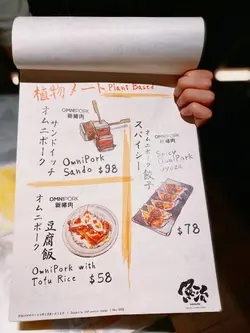 植物ノート Plant Based
OMNIPORK
新豬肉
オムニポーク
サンドイッチ
OmniPork
Sando $98
オムニポーク餃子
スパイシー
OMNIPORK
新豬肉
Spicy
OmniPork
Gyoza
$78
OMNIPORK
新豬肉
オムニポーク
豆腐飯
OmniPork with
Tofu Rice $58